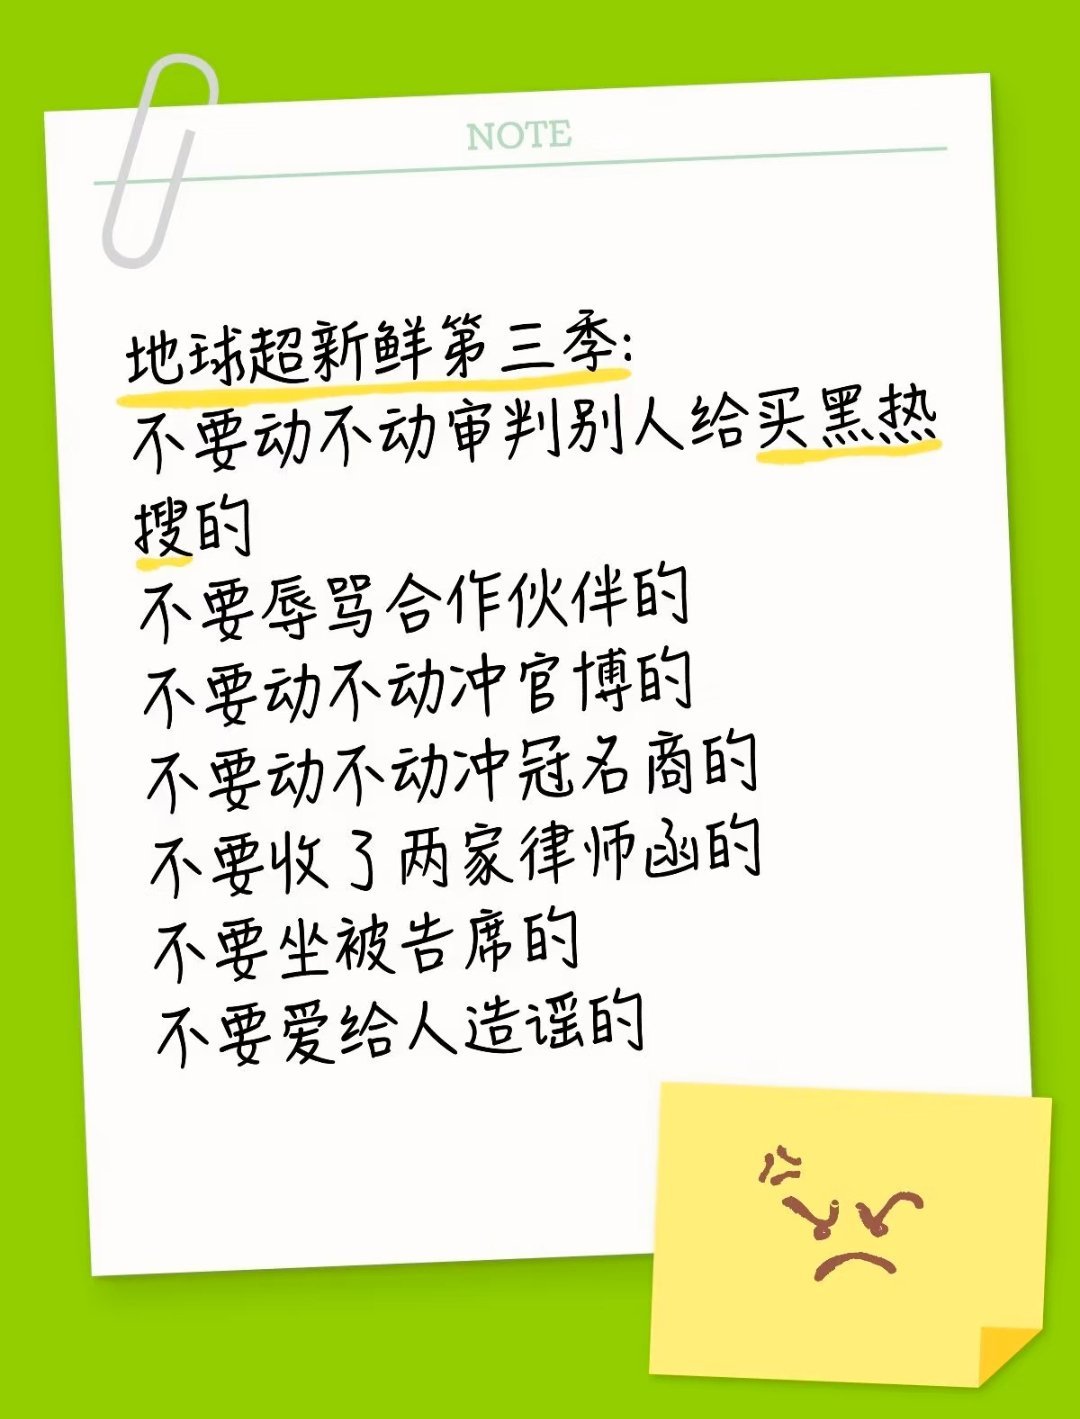 NOTE
地球超新鲜第三季:
不要动不动审判别人给买黑热
搜的
不要辱骂合作伙伴的
不要动不动冲官博的
不要动不动冲冠名商的
不要收了两家律师函的
不要坐被告席的
不要爱给人造谣的